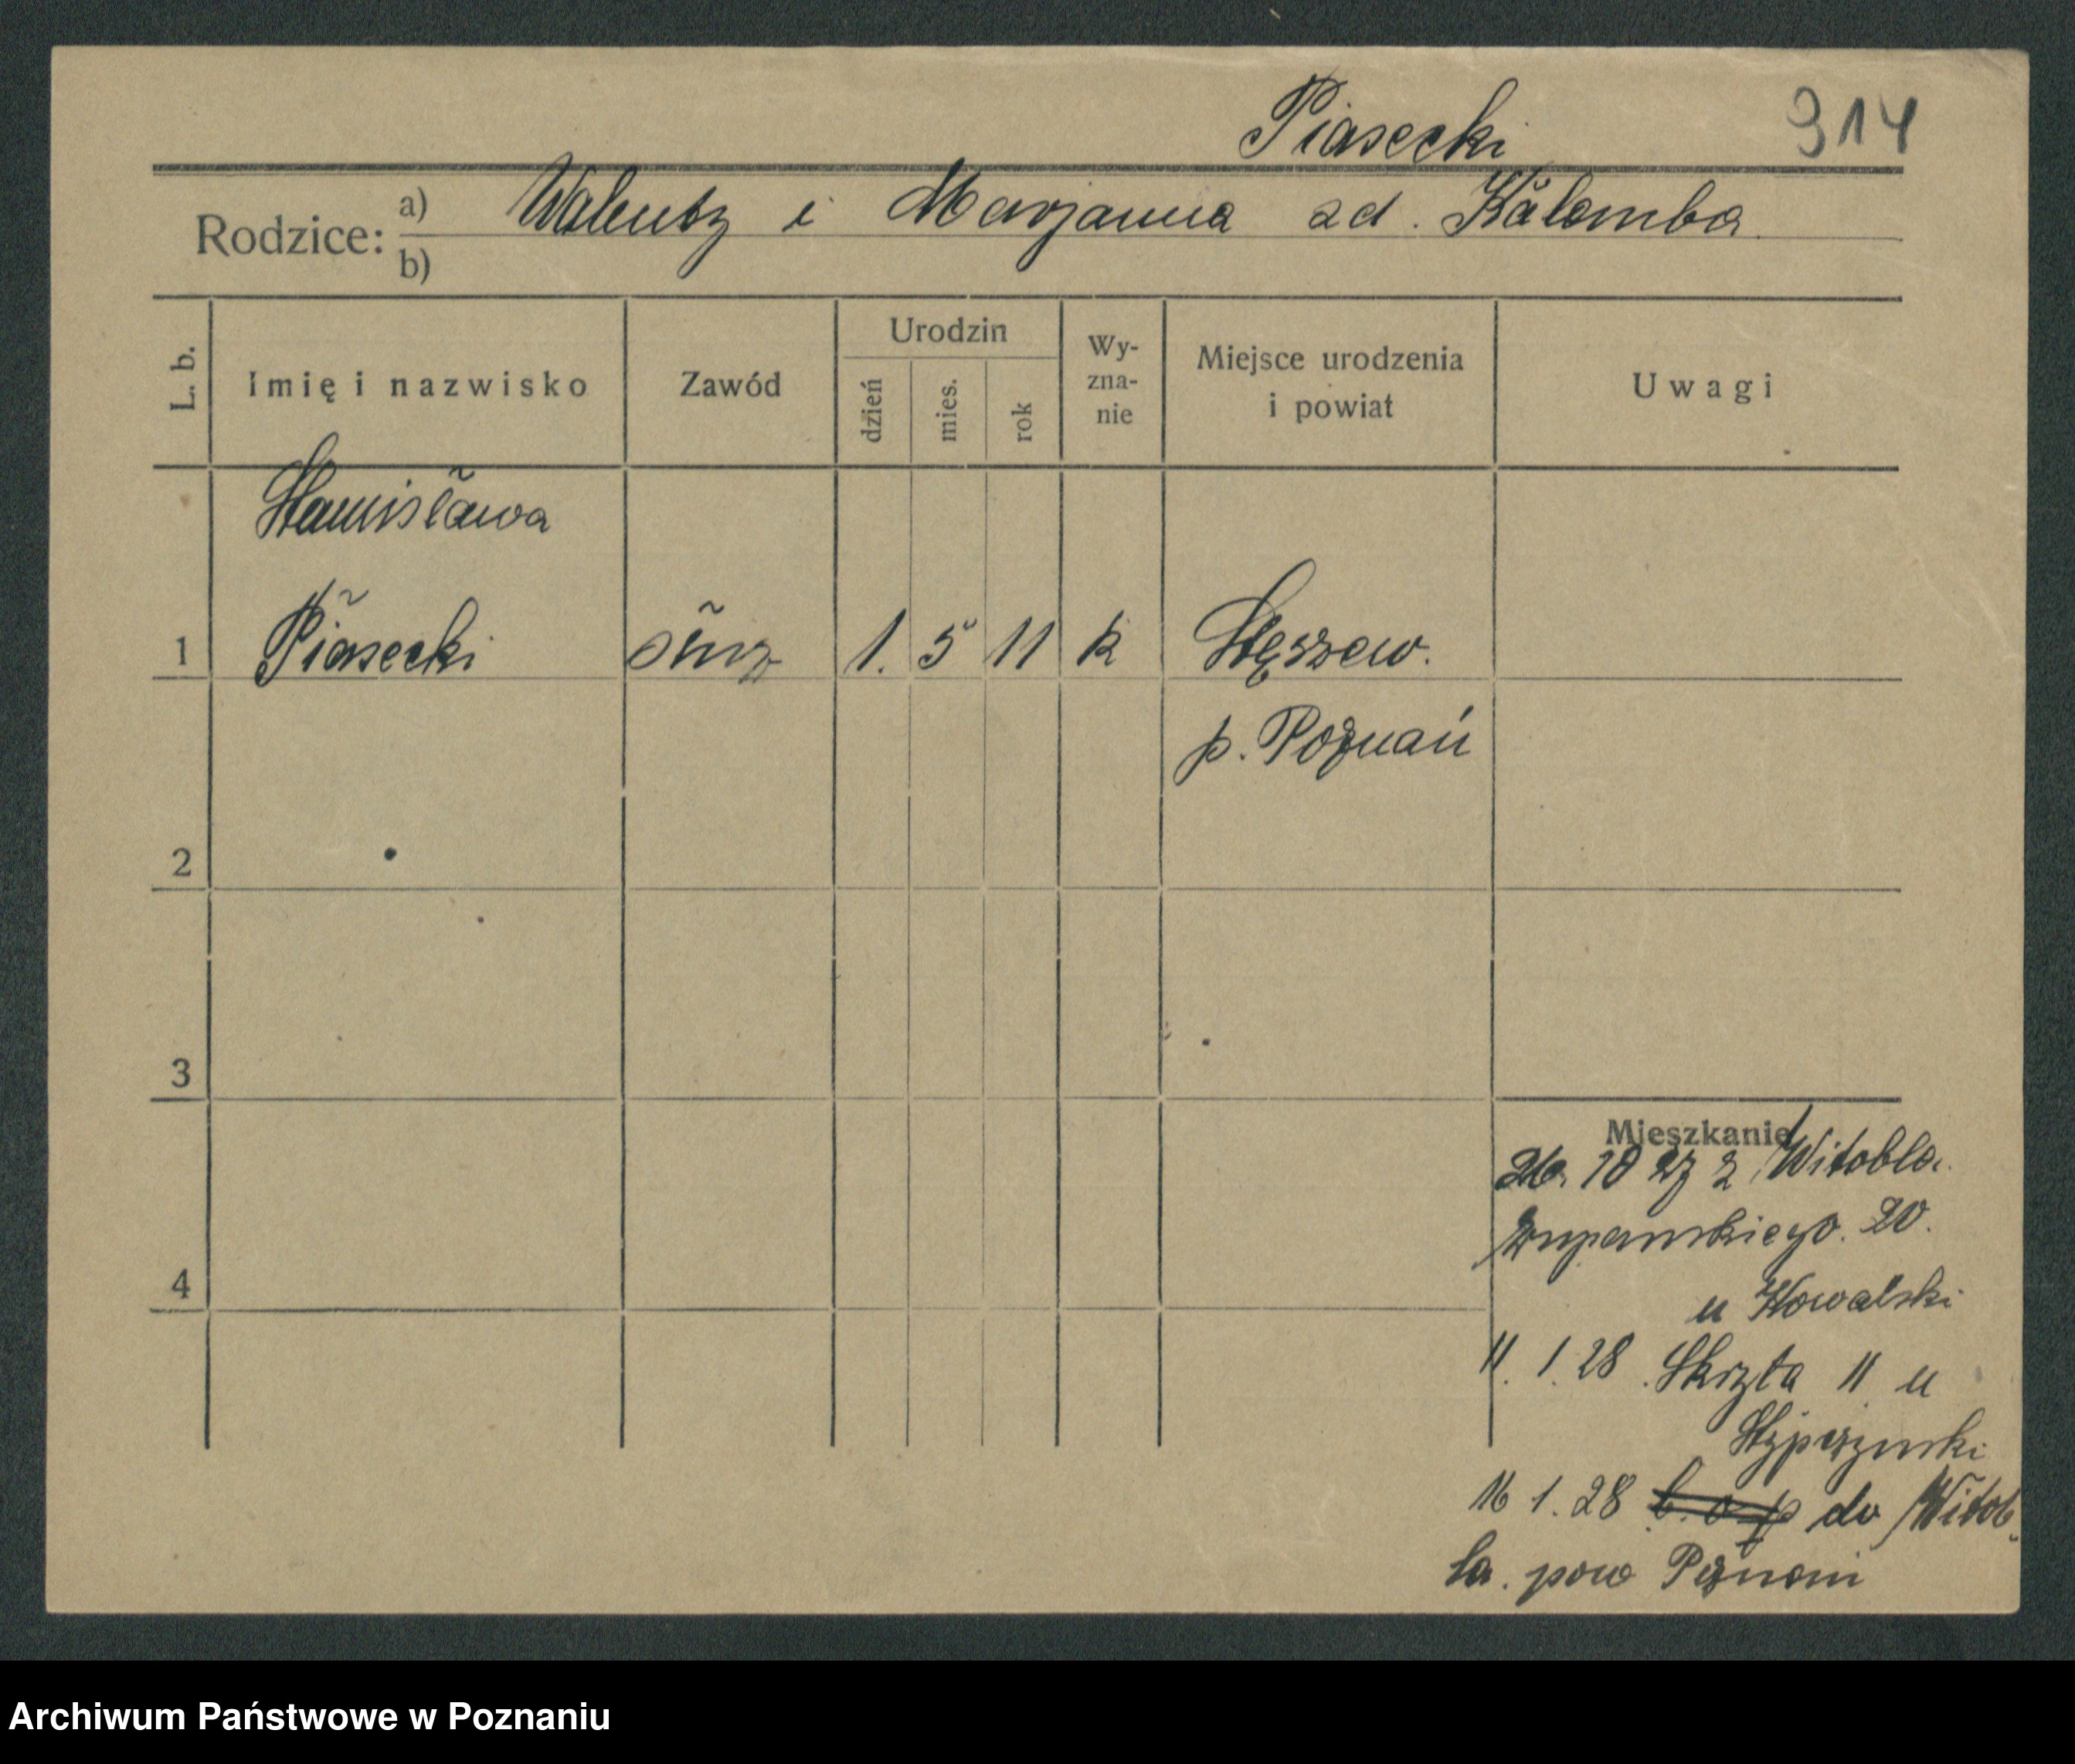 Piasecki 914
Rodzice: a) Walenty i Marjanna zd. Kałamba
b)
L. b. Imię i nazwisko Zawód Urodzin dzień mies. rok Wyznanie Miejsce urodzenia i powiat Uwagi
Stanisława
1 Piasecki służ 1. 5 11 k Stęszew.
p. Poznań
2
3
Mieszkanie
26. 10 27 z Witobla.
Zupanskiego. 20.
4
u Kowalski
11. 1. 28 Skryta 11 u
16 1. 28 do Witob
la. pow Poznań
Archiwum Państwowe w Poznaniu